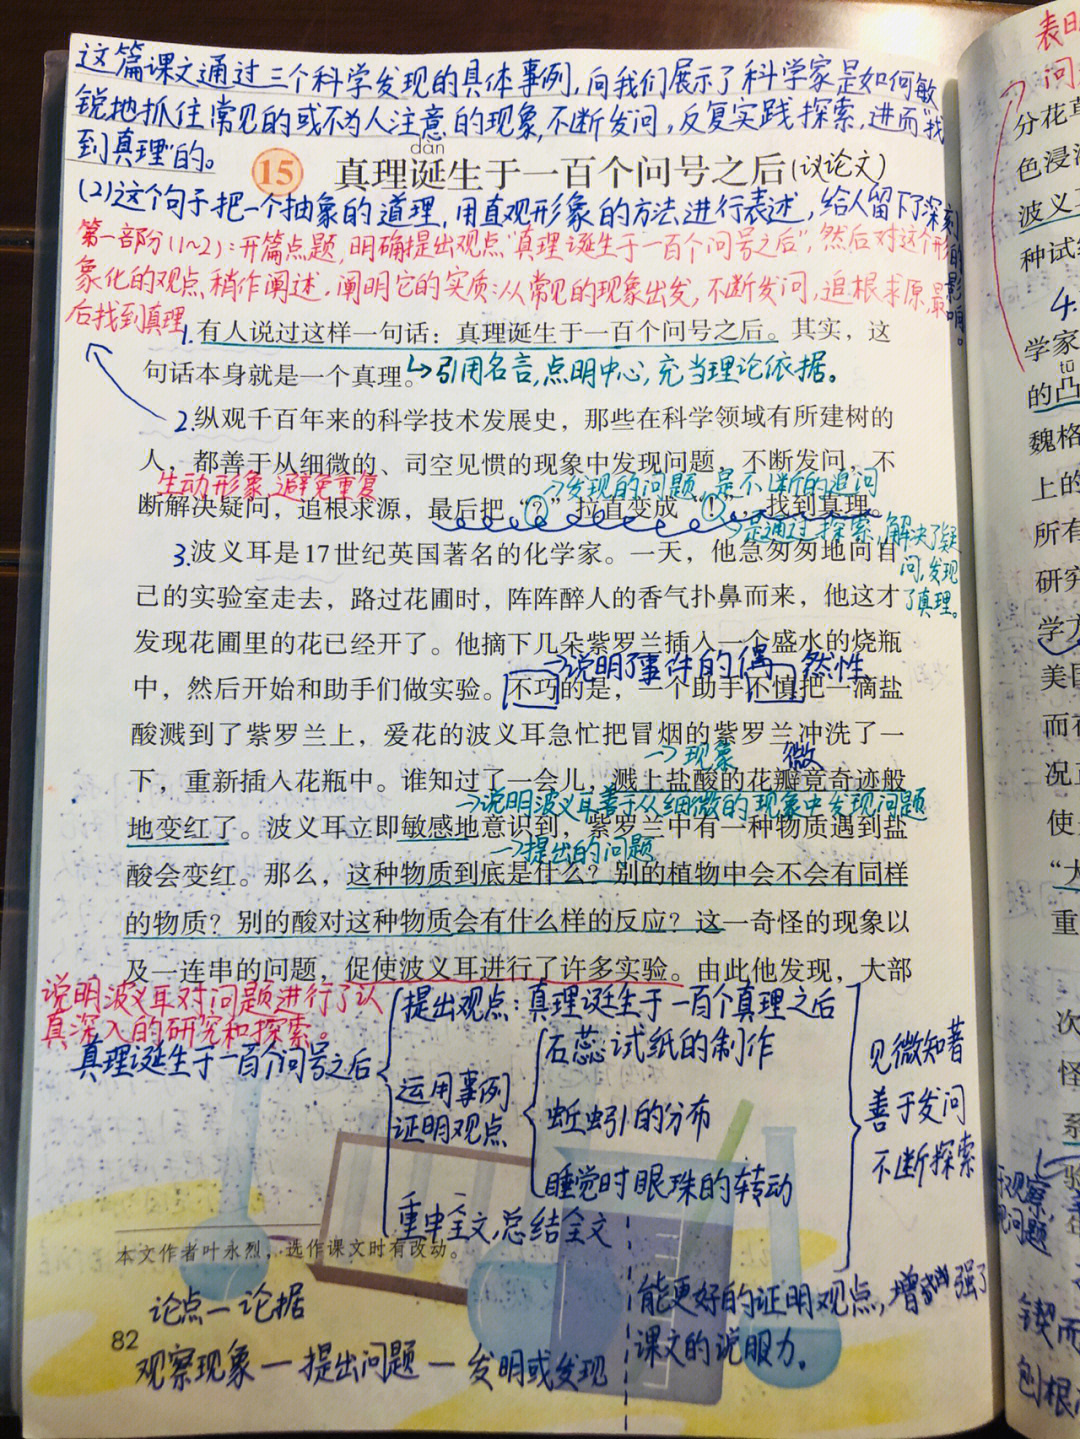 这篇课文通过三个科学发现的具体事例,向我们展示了科学家是如何敏
锐地抓住常见的或不为人注意的现象,不断发问,反复实践探索,进而“找
到真理”的。
dàn
15 真理诞生于一百个问号之后(议论文)
(2)这个句子把一个抽象的道理,用直观形象的方法进行表述,给人留下了深刻
的影响。
第一部分(1~2):开篇点题,明确提出观点“真理诞生于一百个问号之后”,然后对这个形
象化的观点稍作阐述,阐明它的实质:从常见的现象出发,不断发问,追根求原,最
后找到真理
1.有人说过这样一句话：真理诞生于一百个问号之后。其实，这
句话本身就是一个真理。
引用名言,点明中心,充当理论依据。
2.纵观千百年来的科学技术发展史，那些在科学领域有所建树的
人，都善于从细微的、司空见惯的现象中发现问题，不断发问，不
生动形象,避免重复
发现的问题,是不断的追问
断解决疑问，追根求源，最后把“?”拉直变成“!”，找到真理。
是通过探索,解决了疑
问,发现
了真理。
3.波义耳是17世纪英国著名的化学家。一天，他急匆匆地向自
己的实验室走去，路过花圃时，阵阵醉人的香气扑鼻而来，他这才
发现花圃里的花已经开了。他摘下几朵紫罗兰插入一个盛水的烧瓶
说明了事件的偶然性
中，然后开始和助手们做实验。不巧的是，一个助手不慎把一滴盐
酸溅到了紫罗兰上，爱花的波义耳急忙把冒烟的紫罗兰冲洗了一
现象 微
下，重新插入花瓶中。谁知过了一会儿，溅上盐酸的花瓣竟奇迹般
说明波义耳善于从细微的现象中发现问题
地变红了。波义耳立即敏感地意识到，紫罗兰中有一种物质遇到盐
提出的问题
酸会变红。那么，这种物质到底是什么？别的植物中会不会有同样
的物质？别的酸对这种物质会有什么样的反应？这一奇怪的现象以
及一连串的问题，促使波义耳进行了许多实验。由此他发现，大部
说明波义耳对问题进行了认
真深入的研究和探索。
真理诞生于一百个问号之后
提出观点:真理诞生于一百个真理之后
运用事例
证明观点
石蕊试纸的制作
蚯蚓的分布
睡觉时眼珠的转动
重申全文,总结全文
见微知著
善于发问
不断探索
本文作者叶永烈，选作课文时有改动。
论点—论据
82
观察现象—提出问题—发明或发现
能更好的证明观点,增强了
课文的说服力。
表明
问
分花草
色浸
波义
种试
4.
学家
tū
的凸
魏格
上的
所有
研究
学
美国
而
况
使
“大
重
次
怪
系